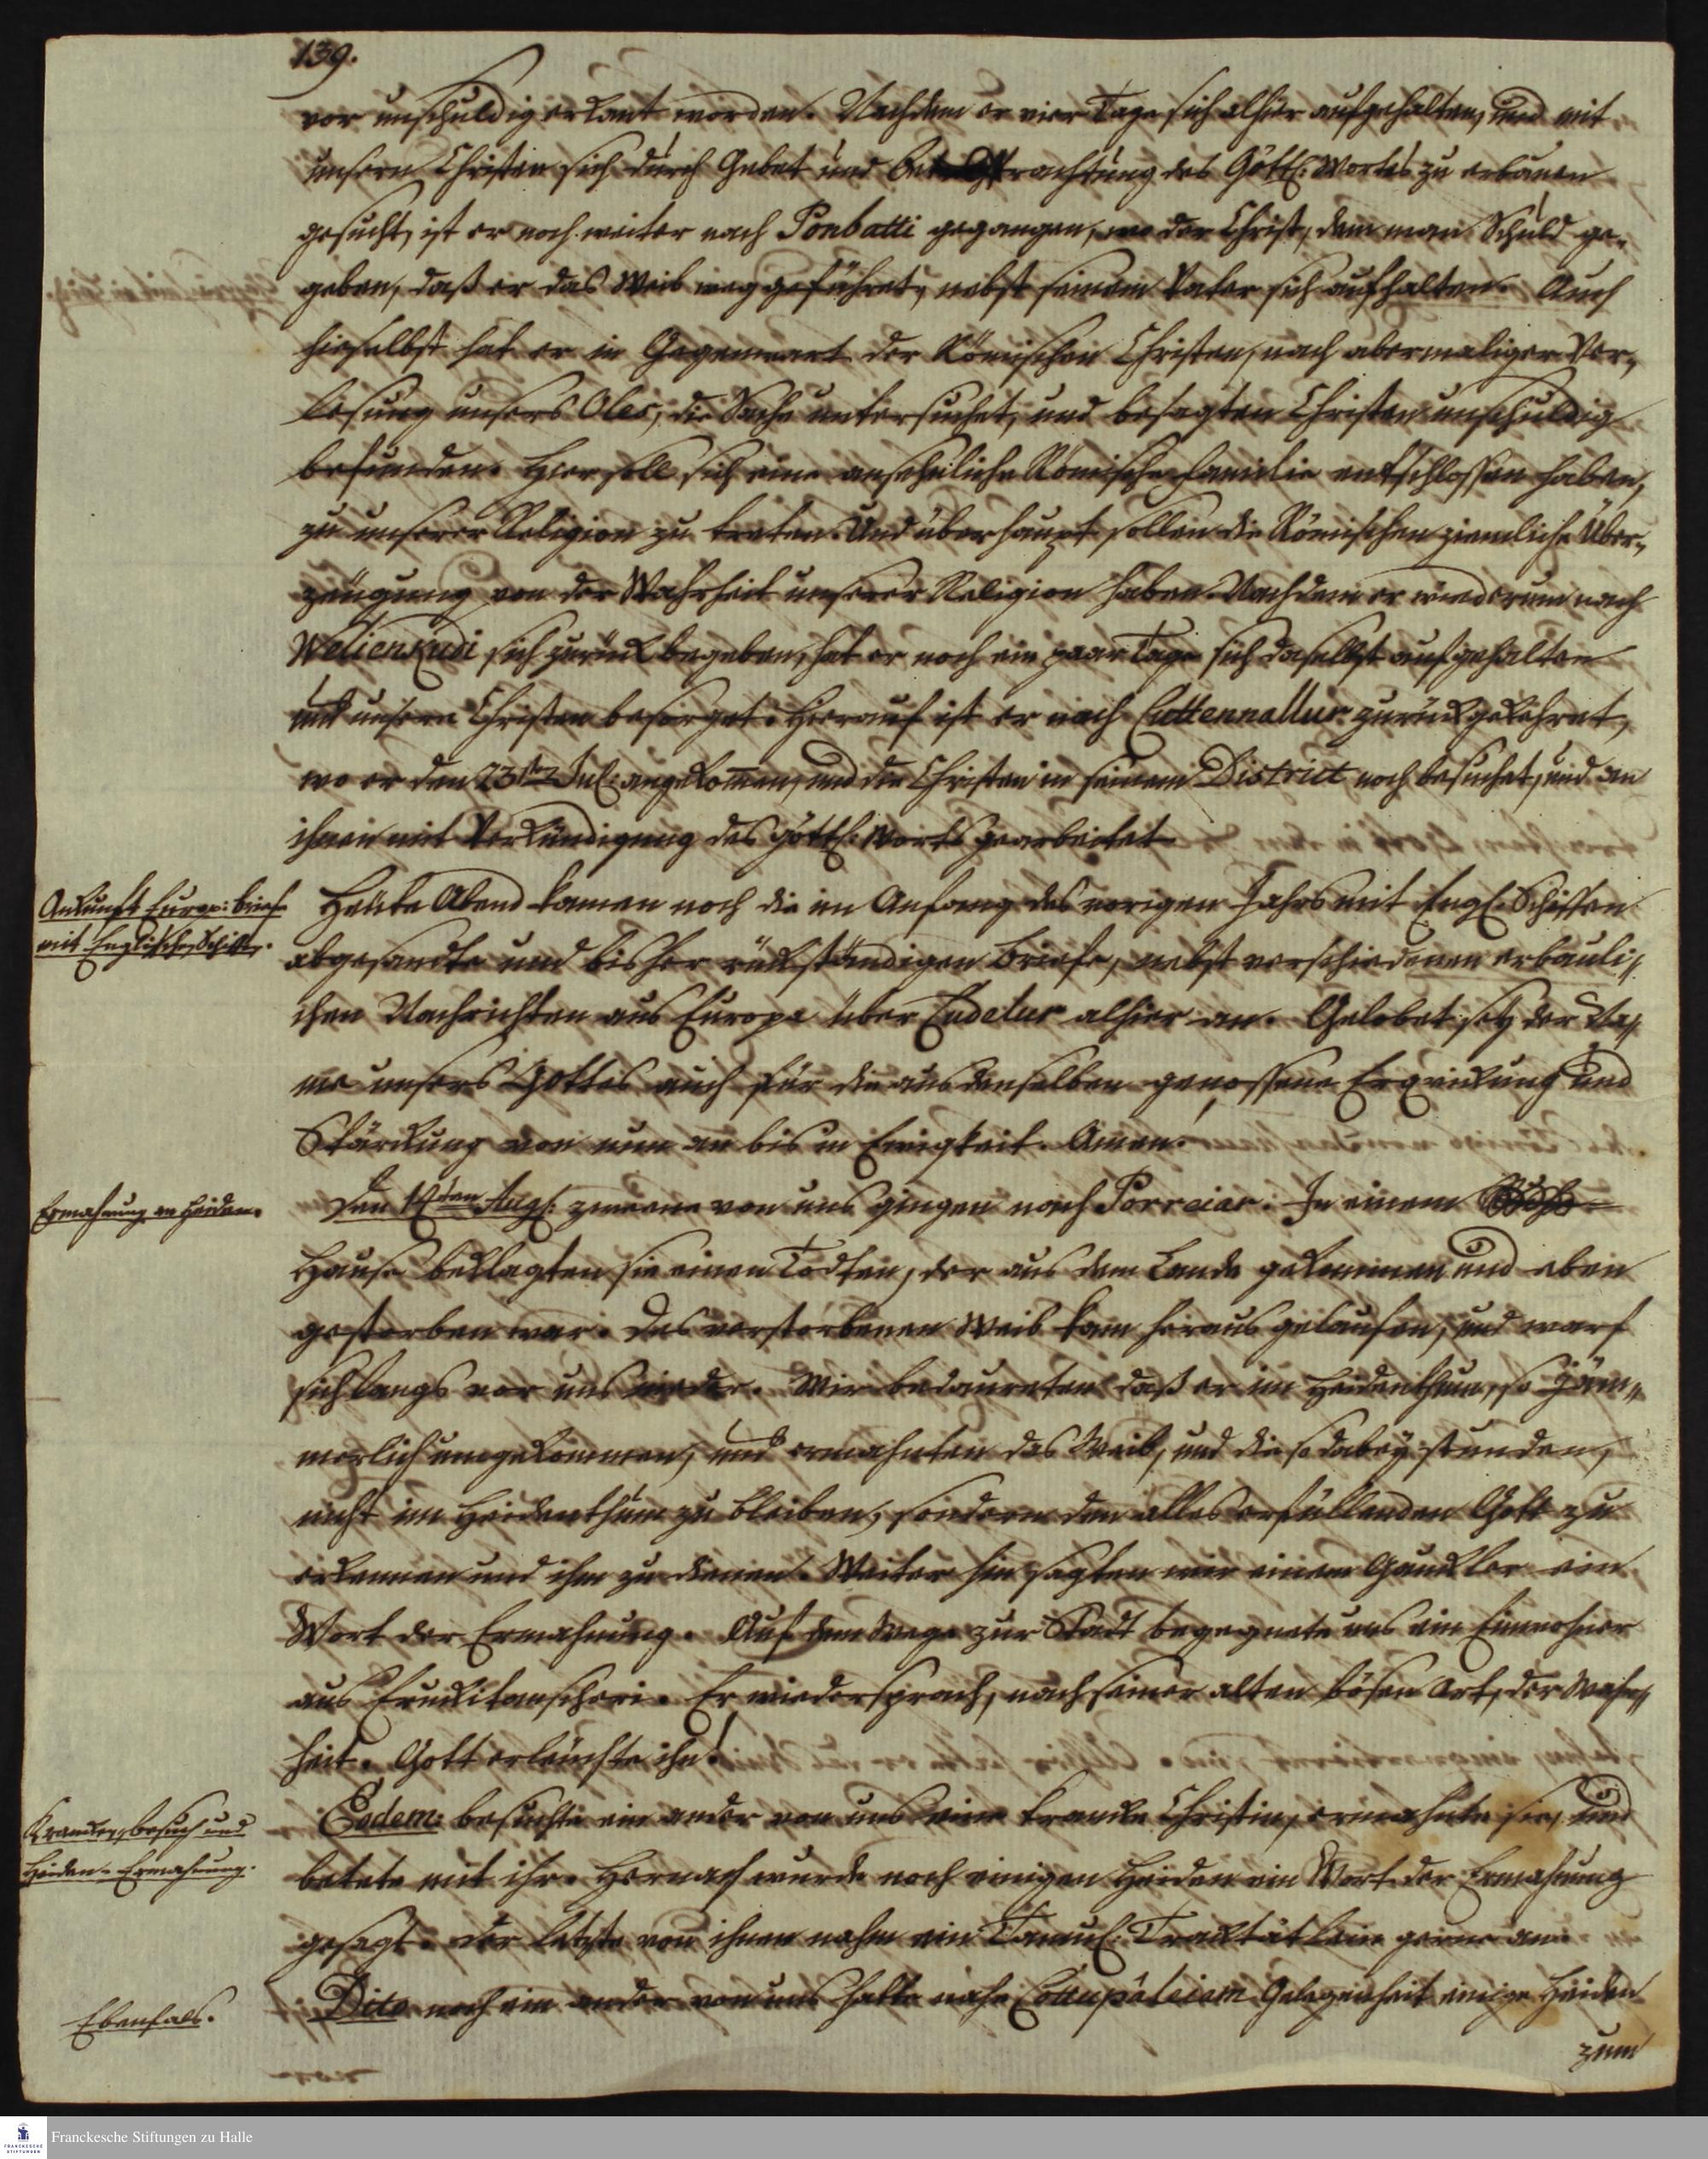 139.
vor unschuldig erkant worden. Nachdem er vier Tage sich alhier aufgehalten, und mit
unsern Christen sich durch Gebet und Betrachtung des Göttl: Wortes zu erbauen
gesucht, ist er noch weiter nach Ponbatti gegangen, wo der Christ, dem man Schuld ge„
geben, daß er das Weib weggeführet, nebst seinem Vater sich aufhalten. Auch
hieselbst hat er in Gegenwart der Römischen Christen, nach abermaliger Ver„
lesung unsers Oles, die Sache untersuchet, und besagten Christen unschuldig
befunden. Hier soll sich eine ansehnliche Römische Familie entschlossen haben,
zu unserer Religion zu treten. Und überhaupt sollen die Römischen ziemliche Über„
zeugung von der Wahrheit unserer Religion haben. Nachdem er wiederum nach
Welienkudi sich zurück begeben, hat er noch ein paar Tage sich daselbst aufgehalten
und unsere Christen besorget. Hierauf ist er nach Cuttennallur zurückgekehret,
wo er den 23ten Jul: angekommen, und die Christen in seinem District noch besuchet, und an
ihnen mit Verkündigung des göttl: Worts gearbeitet.
Ankunft Europ: Briefe
mit Englischen Schiffen.
Heute Abend kamen noch die im Anfang des vorigen Jahrs mit Engl: Schiffen
abgesandte und bisher rückständigen Briefe, nebst verschiedenen erbauli„
chen Nachrichten aus Europa über Cudelur alhier an. Gelobet sey der Na„
me unsers Gottes auch für die aus denselben genossene Erquickung und
Stärckung von nun an bis in Ewigkeit. Amen.
Ermahnung an Heiden.
Den Augs: zweene von uns gingen nach Porreiar. In einem
Hause beklagten sie einen Todten, der aus dem Lande gekommen und eben
gestorben war. Des verstorbenen Weib kam heraus gelaufen, und warf
sich langs vor uns nieder. Wir bedaureten daß er im Heidenthum, so jäm„
merlich umgekommen, und ermahnten das Weib, und die so dabey stunden,
nicht im Heidenthum zu bleiben, sondern den alles erfüllenden Gott zu
erkennen und ihm zu dienen. Weiter hin sagten wir einem Gauckler ein
Wort der Ermahnung. Auf dem Wege zur Stadt begegnete uns ein Einwohner
aus Erukitanscheri. Er wiedersprach, nach seiner alten bösen Art, der Wahr„
heit. Gott erleuchte ihn!
Kranckenbesuch und
Heiden-Ermahnung.
Eodem: besuchte ein ander von uns eine krancke Christin, ermahnte sie, und
betete mit ihr. Hernach wurde noch einigen Heiden ein Wort der Ermahnung
gesagt. Der letzte von ihnen nahm ein Tamul: Tracktätlein gerne an.
Ebenfals.
Dito noch ein ander von uns hatte nahe Cottupáleiam Gelegenheit einige Heiden
zum
Franckesche Stiftungen zu Halle